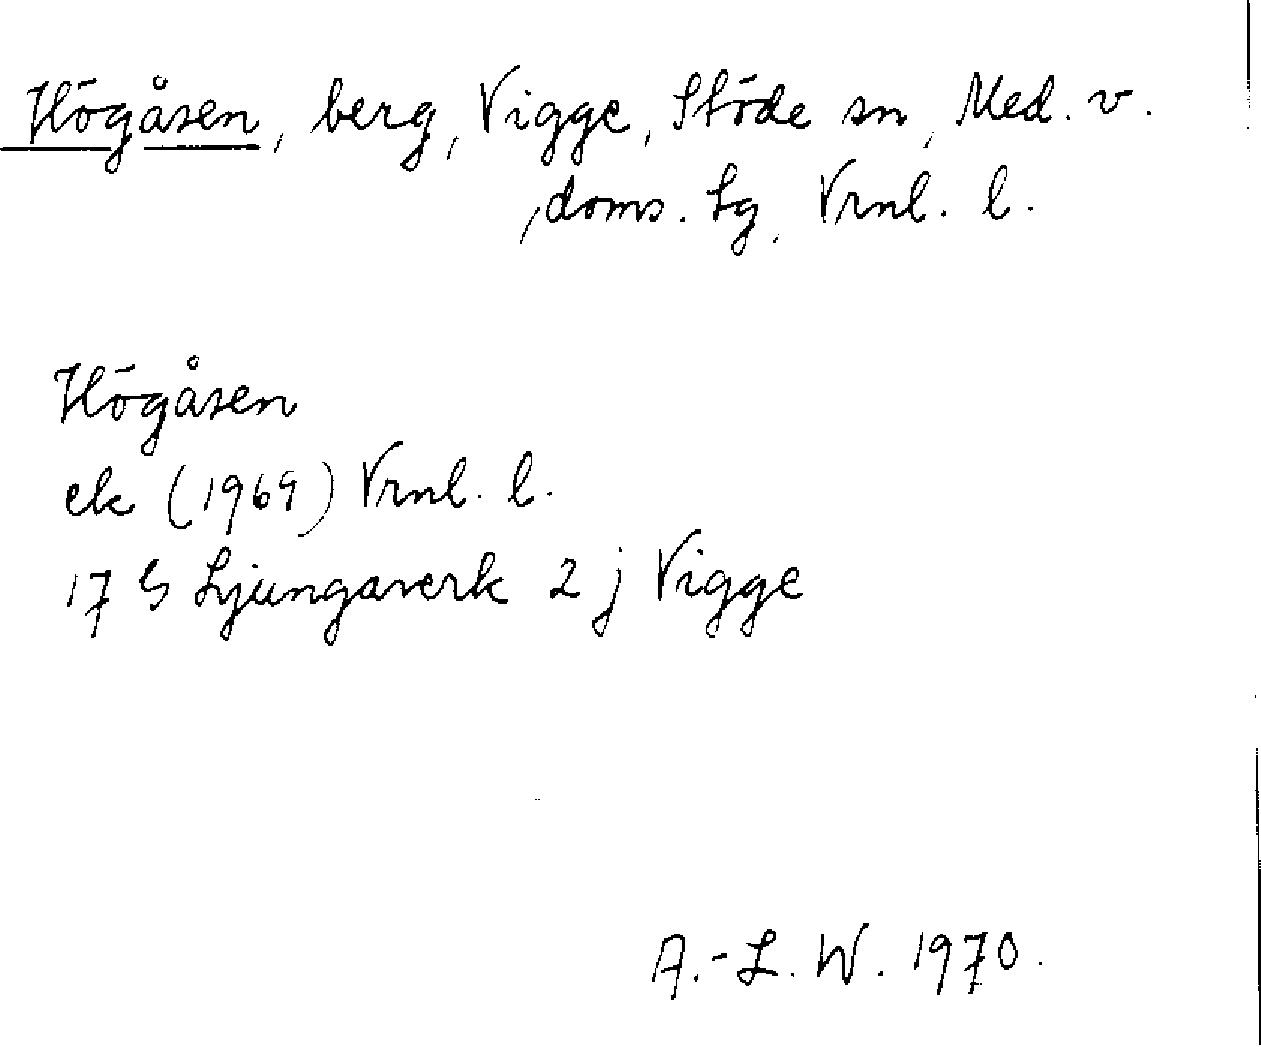 Högåsen, berg, Vigge, Stöde sn, Med. v.
doms. sg, Vrnl. l.
Högåsen
ek (1969) Vrnl. l.
17 G Ljungaverk 2 j Vigge
A.-L. W. 1970.